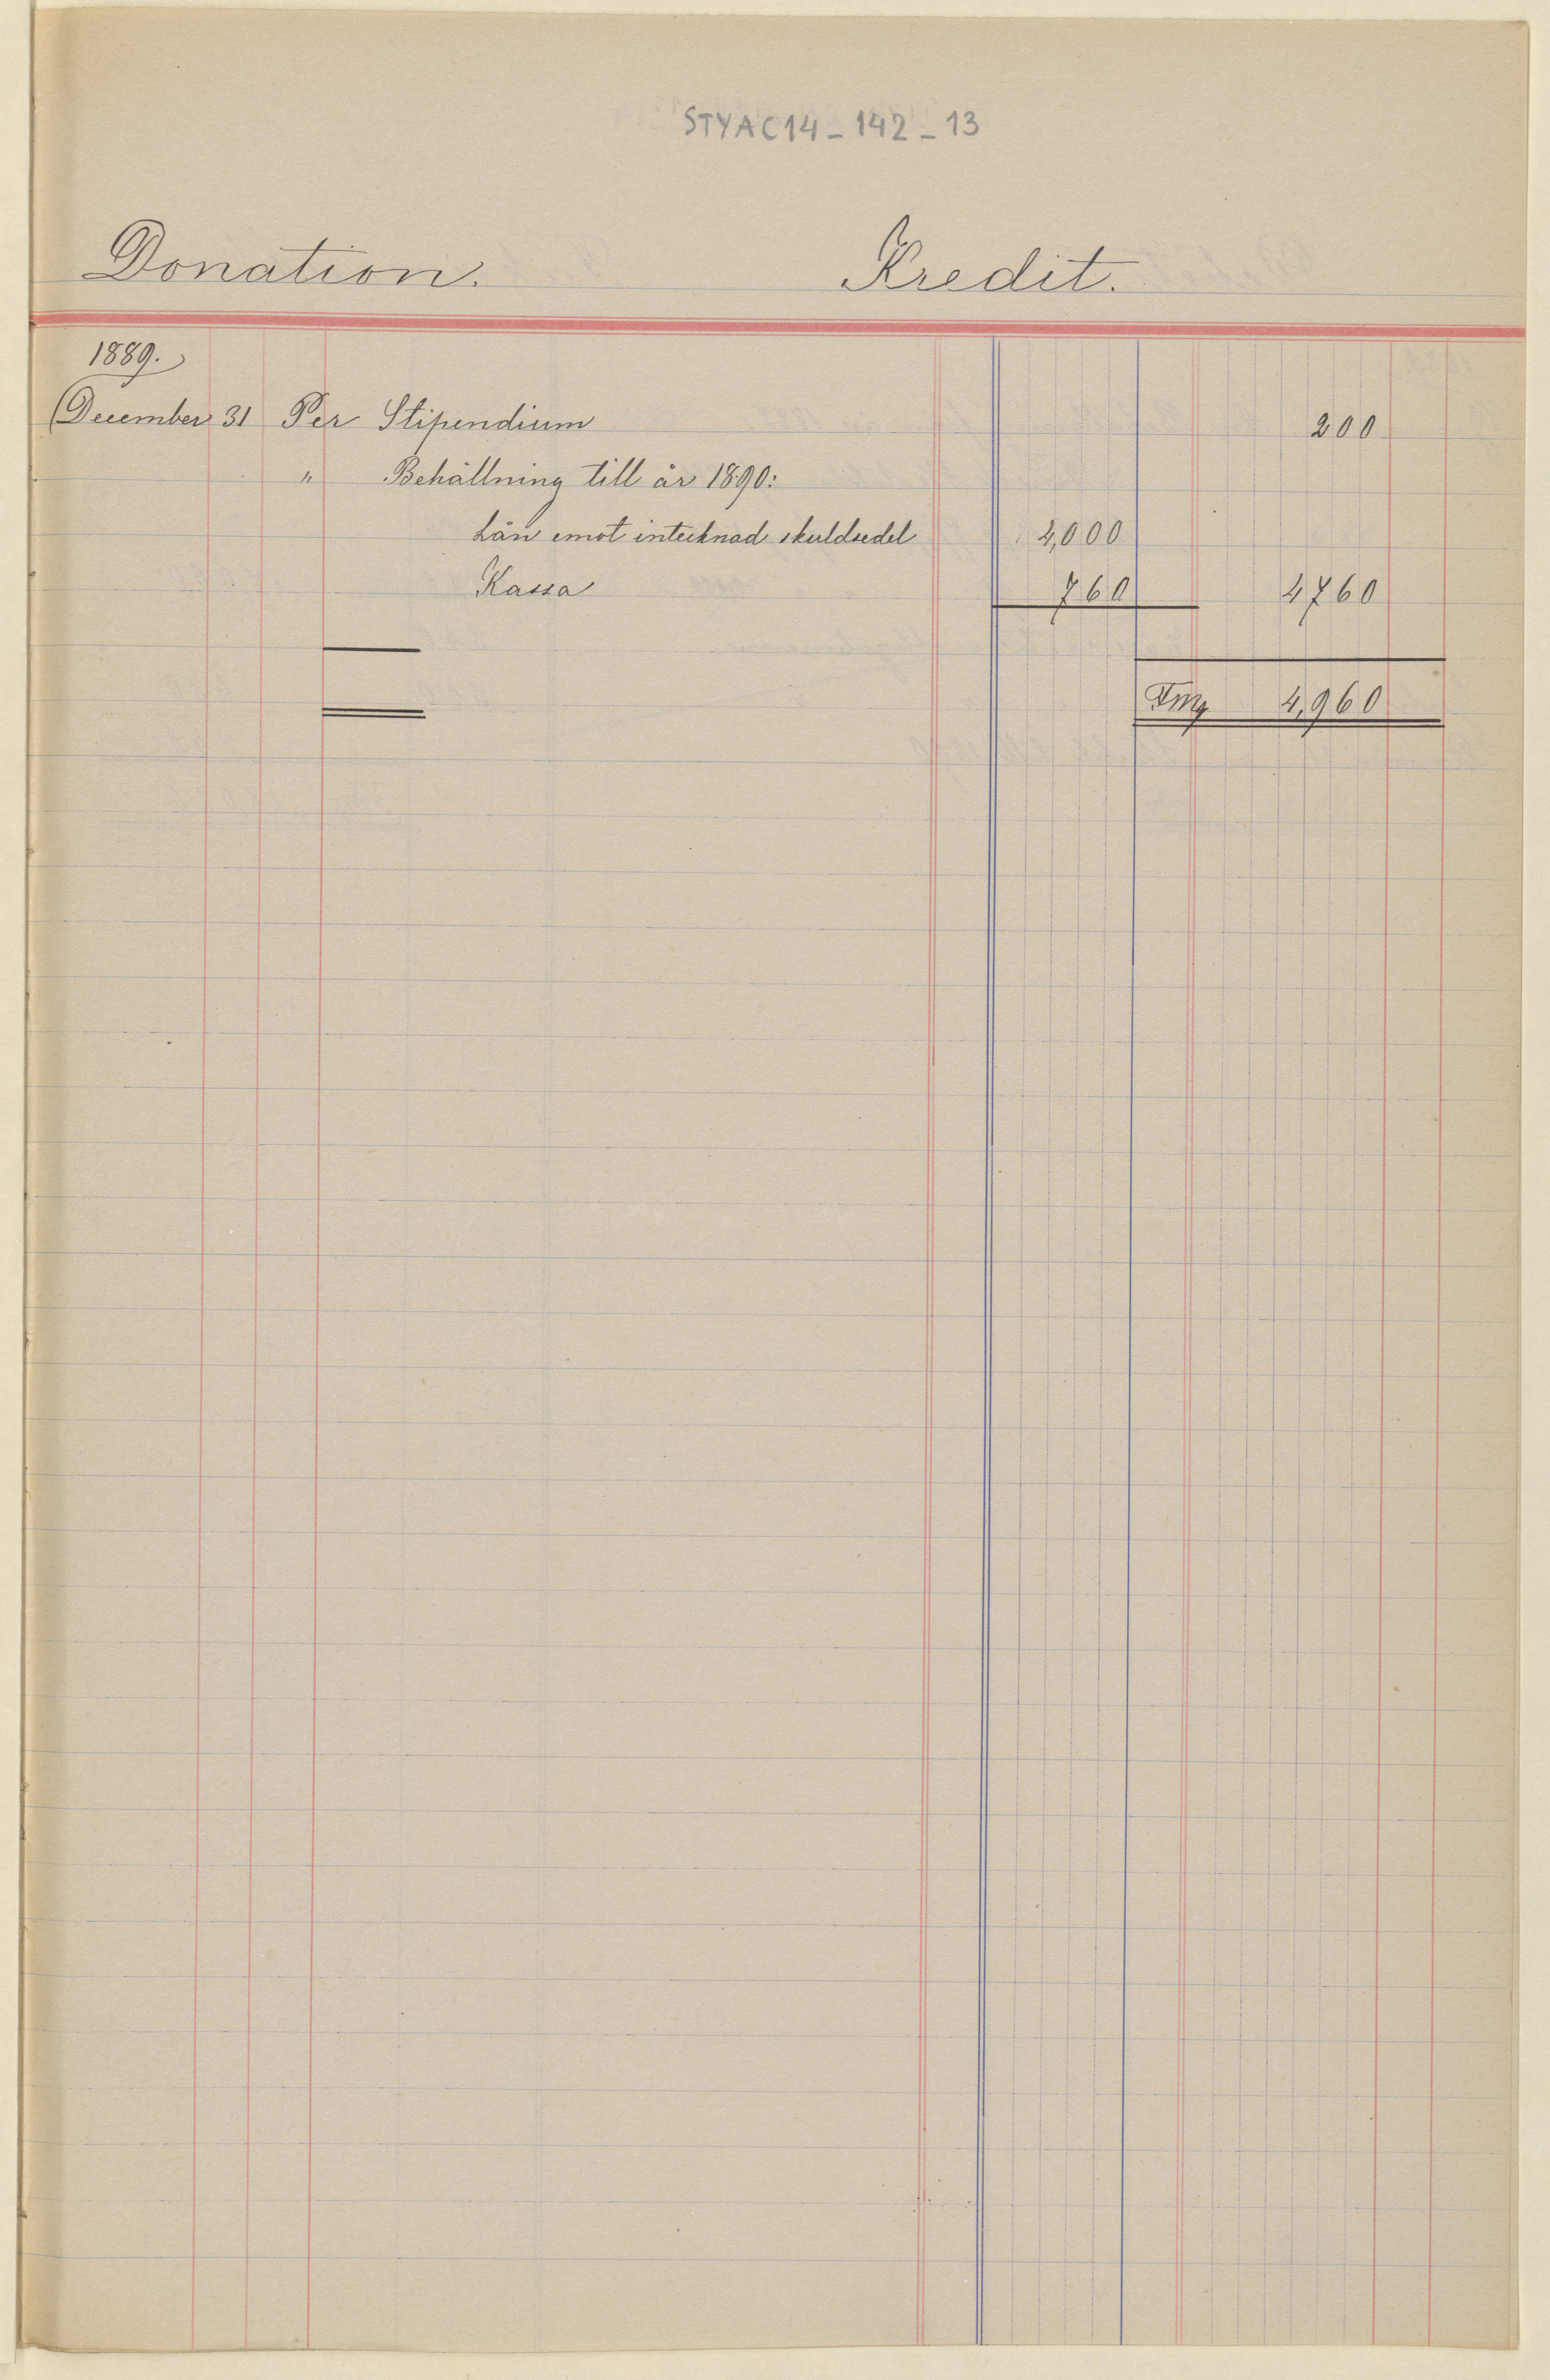 STYAC14-142-13
Donation. Kredit.
1889.
December 31 Per Stipendium 200
" Behållning till år 1890:
Lån emot intecknad skuldsedel 4,000
Kassa 760 4760
Fmg 4,960